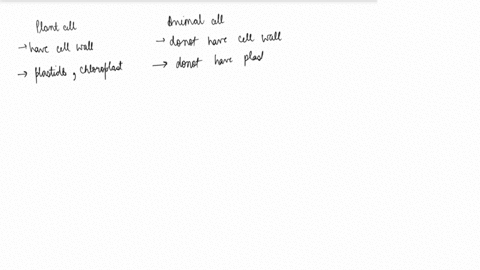 Plant cell
→ have cell wall
→ plastids, chloroplast
Animal cell
→ donot have cell wall
→ donot have plast